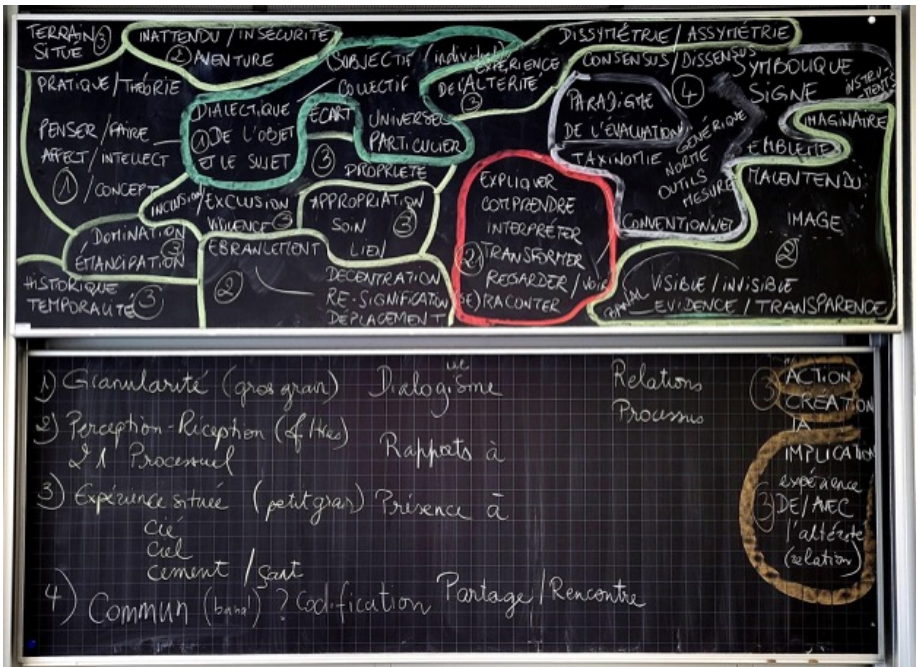 TERRAIN ③
SITUÉ
INATTENDU / INSÉCURITÉ
② AVENTURE
PRATIQUE / THÉORIE
PENSER / FAIRE
AFFECT / INTELLECT
① / CONCEPT
DIALECTIQUE
① DE L'OBJET
ET LE SUJET
SUBJECTIF (individuel)
COLLECTIF
ÉCART
UNIVERSEL
PARTICULIER
③
PROPRIÉTÉ
EXPÉRIENCE
DE L'ALTÉRITÉ
③
DISSYMÉTRIE / ASSYMÉTRIE
CONSENSUS / DISSENSUS
PARADIGME
DE L'ÉVALUATION
④
TAXINOMIE
GÉNÉRIQUE
NORME
OUTILS
MESURE
CONVENTIONNEL
SYMBOLIQUE
SIGNE
INSTRUMENTS
IMAGINAIRE
EMBLÈME
MALENTENDU
IMAGE
②
INCLUSION / EXCLUSION
VIOLENCE ③
DOMINATION
ÉMANCIPATION
③
HISTORIQUE
TEMPORALITÉ ③
ÉBRANLEMENT
②
APPROPRIATION
SOIN ③
LIEN
DÉCENTRATION
RE-SIGNIFICATION
DÉPLACEMENT
EXPLIQUER
COMPRENDRE
INTERPRÉTER
21 TRANSFORMER
REGARDER / VOIR
(SE) RACONTER
VISIBLE / INVISIBLE
BANAL
ÉVIDENCE / TRANSPARENCE
1) Granularité (gros grain) Dialogisme
Relations
Processus
2) Perception-Réception (filtres)
21 Processuel
Rapports à
3) Expérience située (petit grain) Présence à
cié
ciel
cement / çant
4) Commun (banal) ? Codification Partage / Rencontre
③ ACTION
CRÉATION
IMPLICATION
expérience
③ DE/AVEC
l'altérité
(relation)